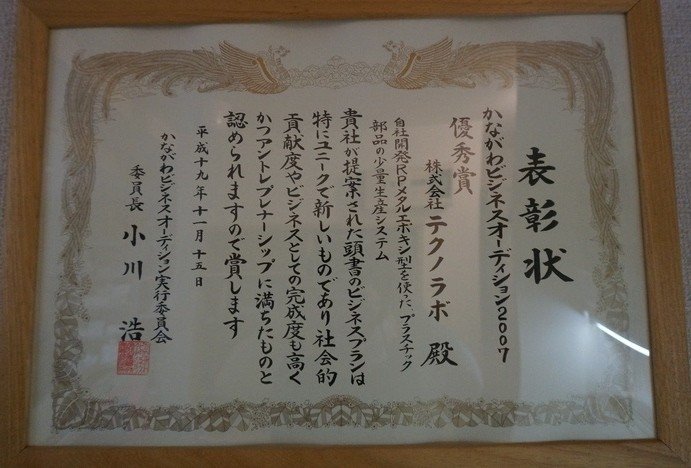 表彰状
かながわビジネスオーディション2007
優秀賞
株式会社 テクノラボ 殿
自社開発RPメタルエポキシ型を使た、プラスチック
部品の少量生産システム
貴社が提案された頭書のビジネスプランは
特にユニークで新しいものであり社会的
貢献度やビジネスとしての完成度も高く
かつアントレプレナーシップに満ちたものと
認められますので賞します
平成十九年十一月十五日
かながわビジネスオーディション実行委員会
委員長 小川 浩